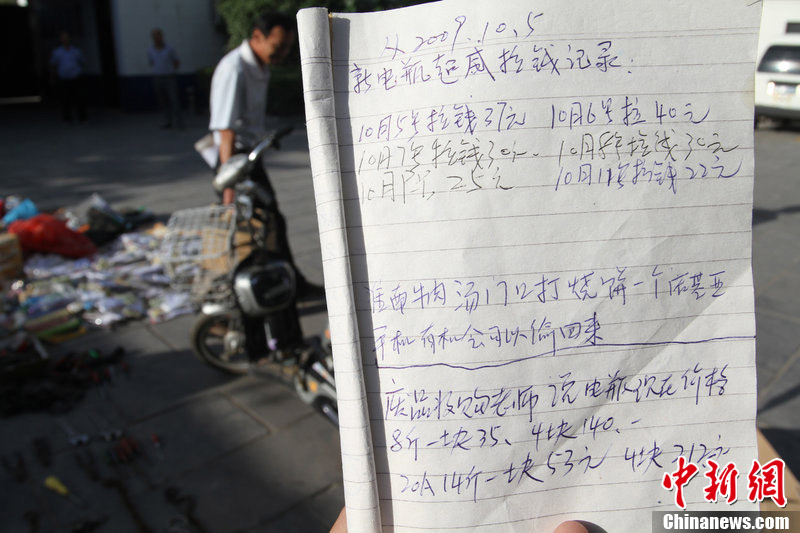 从2009.10.5
新电瓶超威拉钱记录:
10月5号拉钱37元 10月6号拉40元
10月7号拉钱30- 10月8号拉钱30元
10月 25元 10月11号拉钱22元
淮南牛肉汤门口打烧饼一个诺基亚
手机有机会可以偷回来
废品收购老师说电瓶现在价格
8斤一块35、4块140.-
20A 14斤一块53元 4块212元
中新网
Chinanews.com